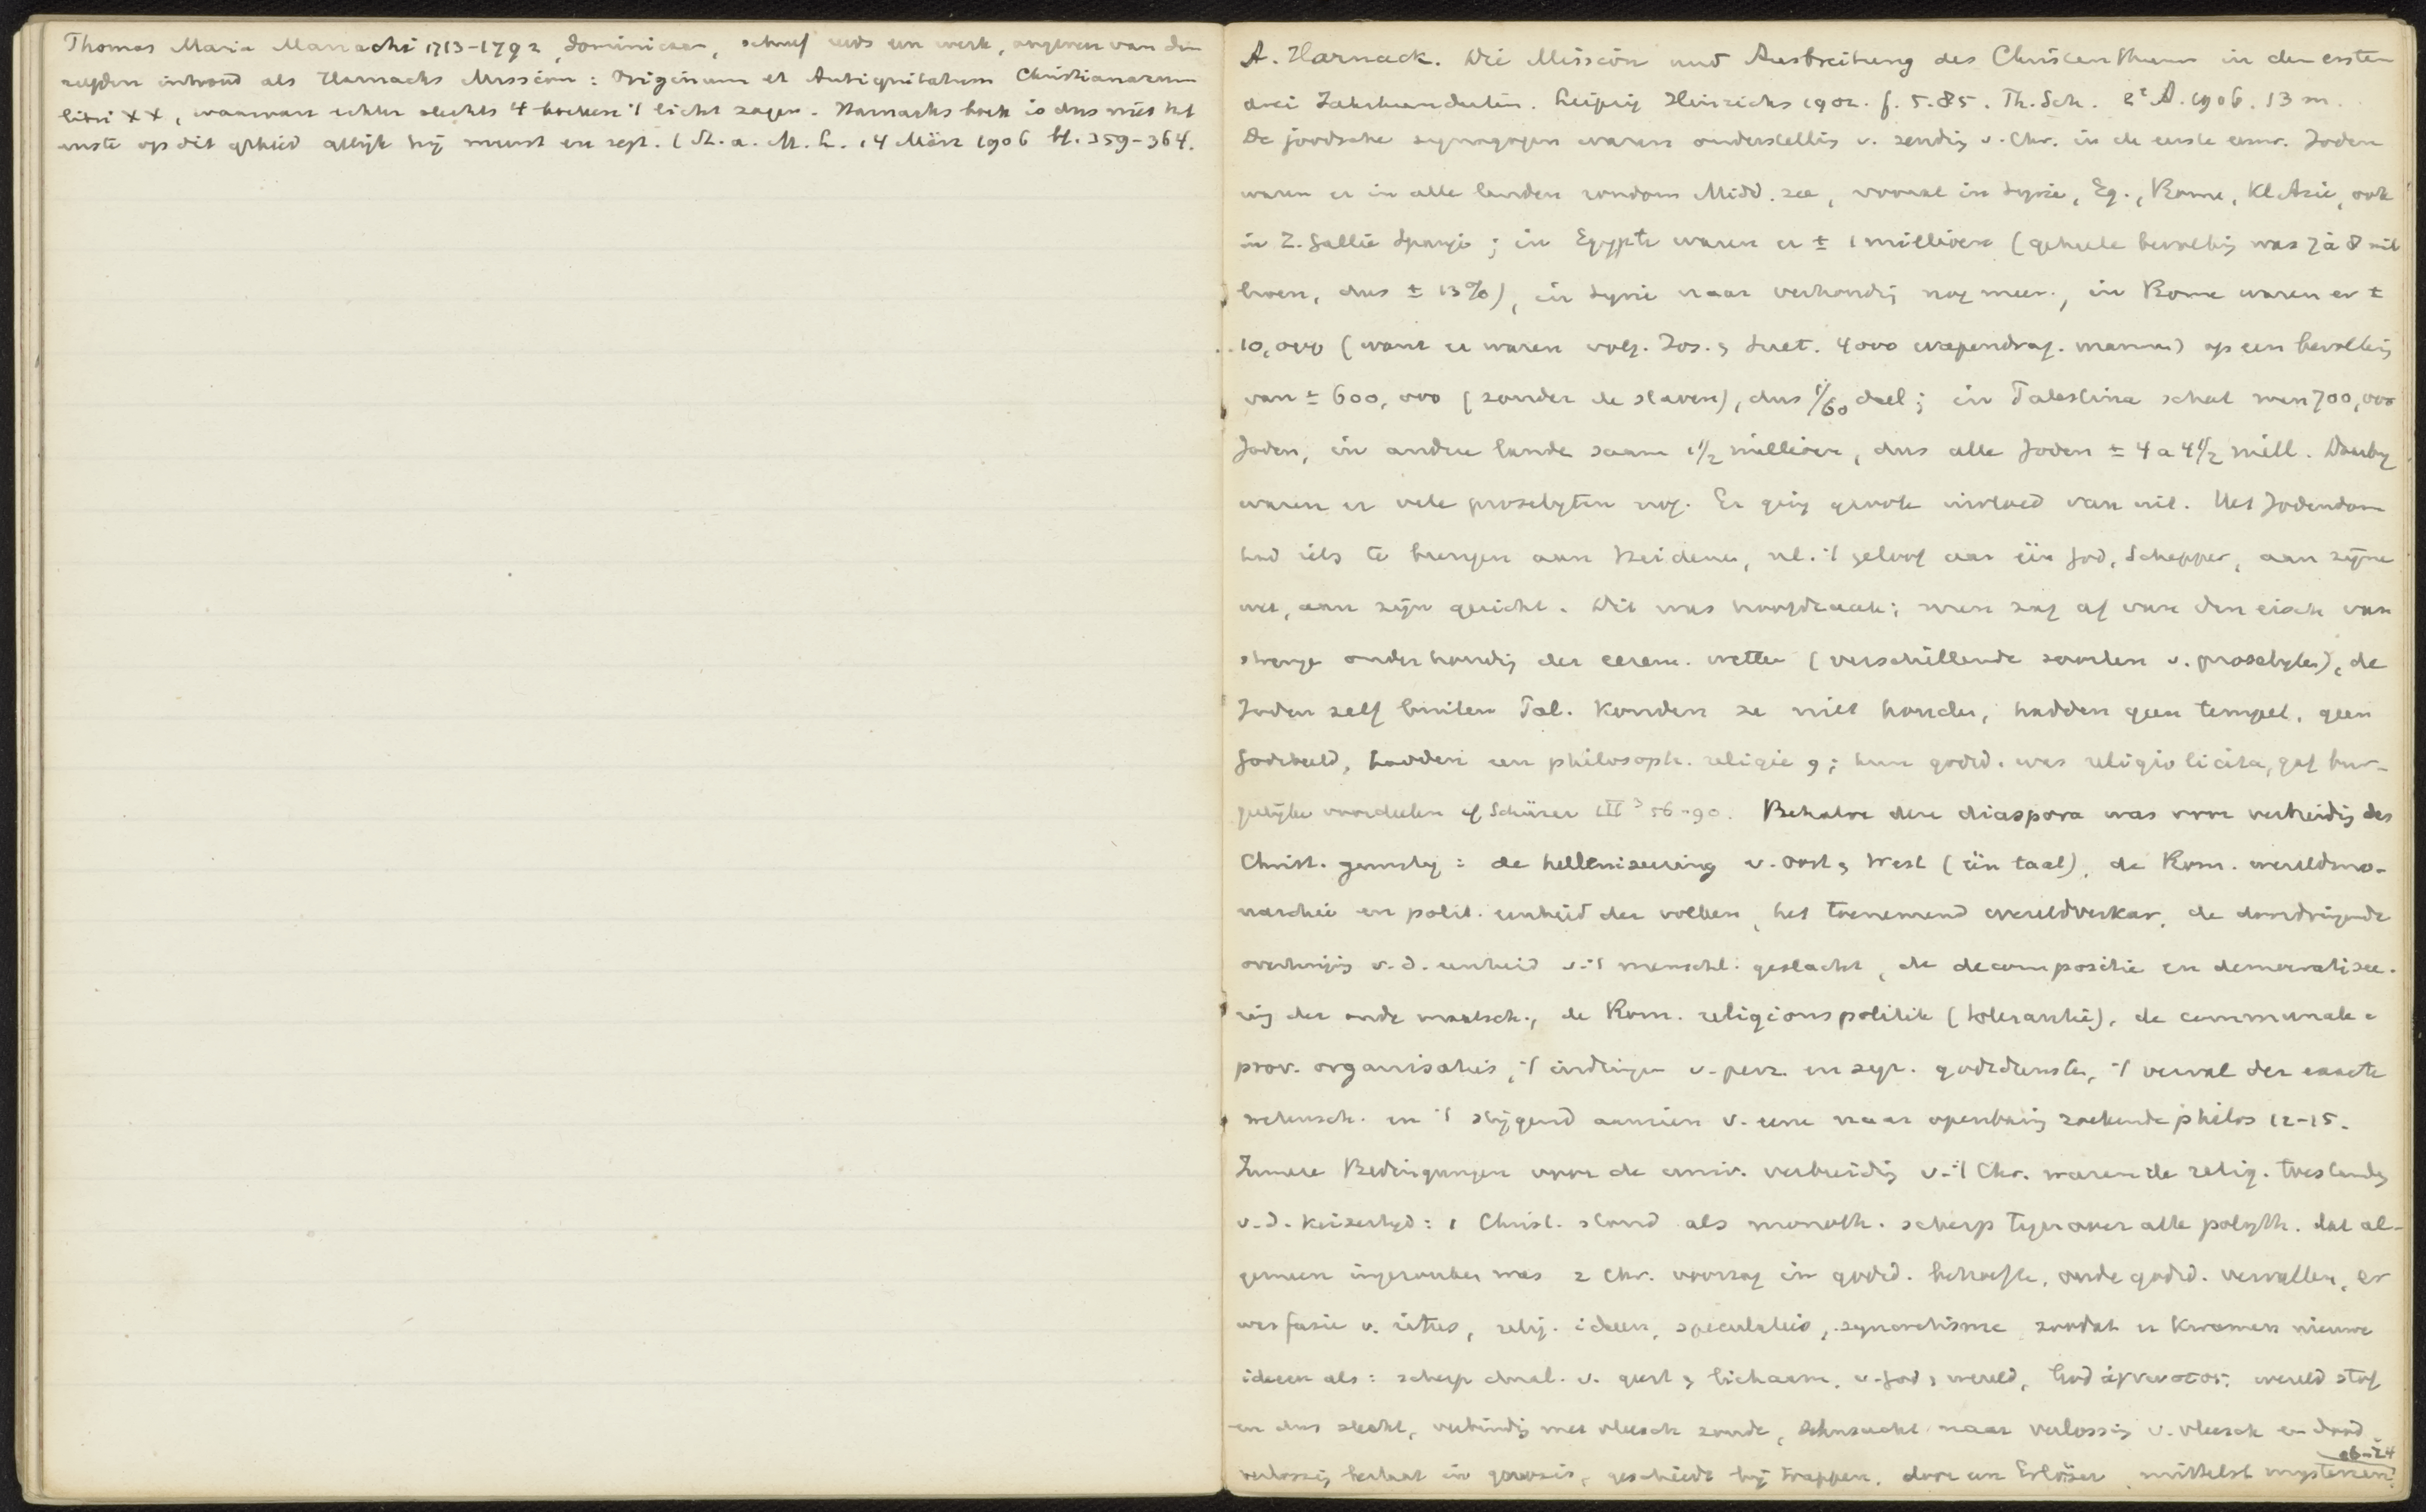 Thomas Maria Mamachi 1713-1792, dominicaan, schreef reeds een werk, ongeveer van den
zelfden inhoud als Harnacks Mission: Originum et Antiquitatum Christianarum
libri XX, waarvan echter slechts 4 boeken 't licht zagen. Harnacks boek is dus niet het
eerste op dit gebied gelijk hij meent en zegt. (St. a. M. L. 14 März 1906 bl. 359-364.
A. Harnack. Die Mission und Ausbreitung des Christenthums in den ersten
drei Jahrhunderten. Leipzig Hinrichs 1902. f. 5.85. Th. Sch. 2e A. 1906. 13 m.
De joodsche synagogen waren onderstelling v. zending v. Chr. in de eerste eeuw. Joden
waren er in alle landen rondom Midd. zee, vooral in Syrie, Eg., Rome, Kl Azie, ook
in Z. Gallie Spanje; in Egypte waren er ± 1 millioen (geheele bevolking was 7 à 8 mil
lioen, dus ± 13%), in Syrie naar verhouding nog meer, in Rome waren er ±
10,000 (want er waren volg. Jos. & Suet. 4000 wapendrag. mannen) op een bevolking
van ± 600,000 (zonder de slaven), dus 1/60 deel; in Palestina schat men 700,000
Joden, in andere landen saam 1 1/2 millioen, dus alle Joden ± 4 a 4 1/2 mill. Daarby
waren er vele proselyten nog. Er ging groote invloed van uit. Het Jodendom
had iets te brengen aan Heidenen, nl. 't geloof aan één God, Schepper, aan zijne
wet, aan zijn gericht. Dit was hoofdzaak; men zag af van den eisch van
strenge onderhouding der cerem. wetten (verschillende soorten v. proselyten), de
Joden zelf buiten Pal. konden ze niet houden, hadden geen tempel, geen
Godsbeeld, hadden een philosoph. religie 9; hun godsd. was religio licita, gaf bur-
gerlijke voordeelen cf Schürer III³ 56-90. Behalve deze diaspora was voor verbreiding des
Christ. gunstig: de helleniseering v. Oost & West (één taal), de Rom. wereldmo-
narchie en polit. eenheid der volken, het toenemend wereldverkeer, de doordringende
overtuiging v. d. eenheid v. 't menschl. geslacht, de decompositie en democratisee-
ring der oude maatsch., de Rom. religionspolitik (tolerantie), de communale e
prov. organisatie, 't indringen v. perz. en syr. godsdiensten, 't verval der exacte
wetensch. en 't stijgend aanzien v. eene naar openbaring zoekende philos 12-15.
Innere Bedingungen voor de univ. verbreiding v. 't Chr. waren de relig. toestanden
v. d. keizertyd: 1 Christ. stond als monoth. scherp tegenover alle polyth. dat al-
gemeen ingeworteld was 2 Chr. voorzag in godsd. behoefte, oude godsd. vervallen, er
was fusie v. ritus, relig. ideeen, speculatie, syncretisme zoodat er kwamen nieuwe
ideeen als: scherp dual. v. geest & lichaam, v. God & wereld, God ἀγνωστος; wereld stof
en dus slecht, verbinding met vleesch zonde, Sehnsucht naar verlossing v. vleesch en dood
verlossing bestaat in gnosis, geschiedt bij trappen, door een Erlöser mittelst mysterien
ab-24